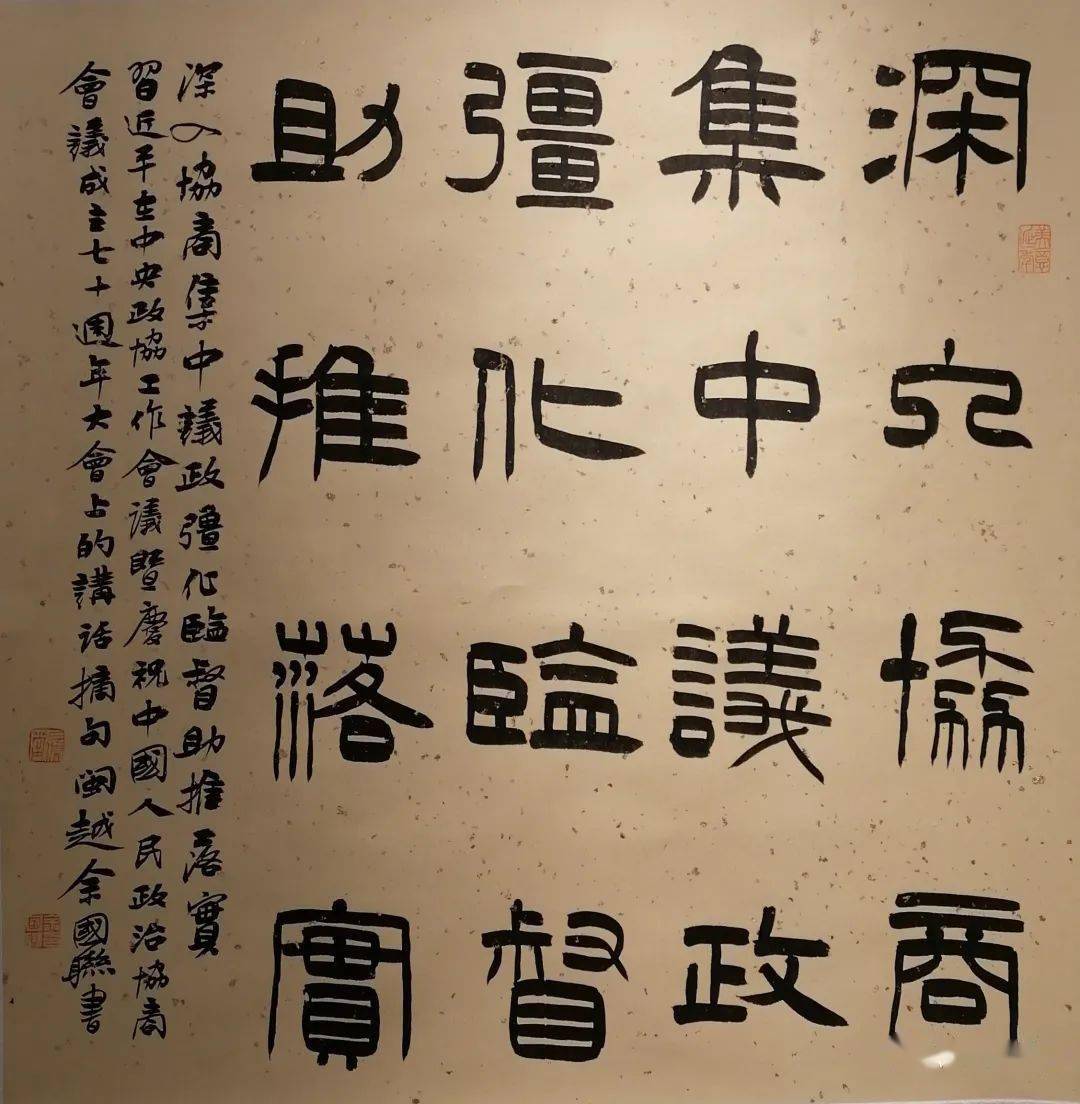 深入協商
集中議政
彊化監督
助推落實
深入協商集中議政彊化監督助推落實
習近平在中央政協工作會議暨慶祝中國人民政治協商
會議成立七十週年大會上的講話摘句 閩越余國聯書